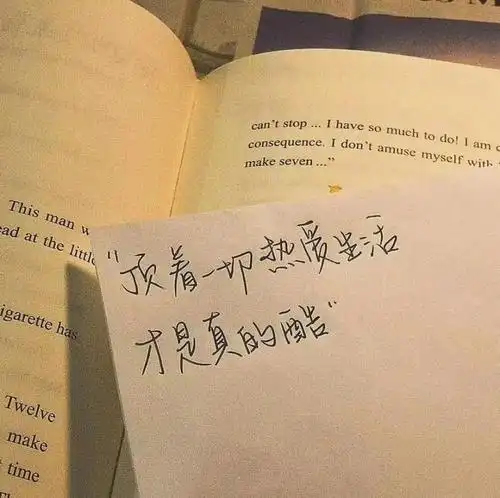 can't stop ... I have so much to do! I am
consequence. I don't amuse myself with
make seven ..."
This man
at the little
cigarette has
Twelve
make
time
"顶着一切热爱生活
才是真的酷"